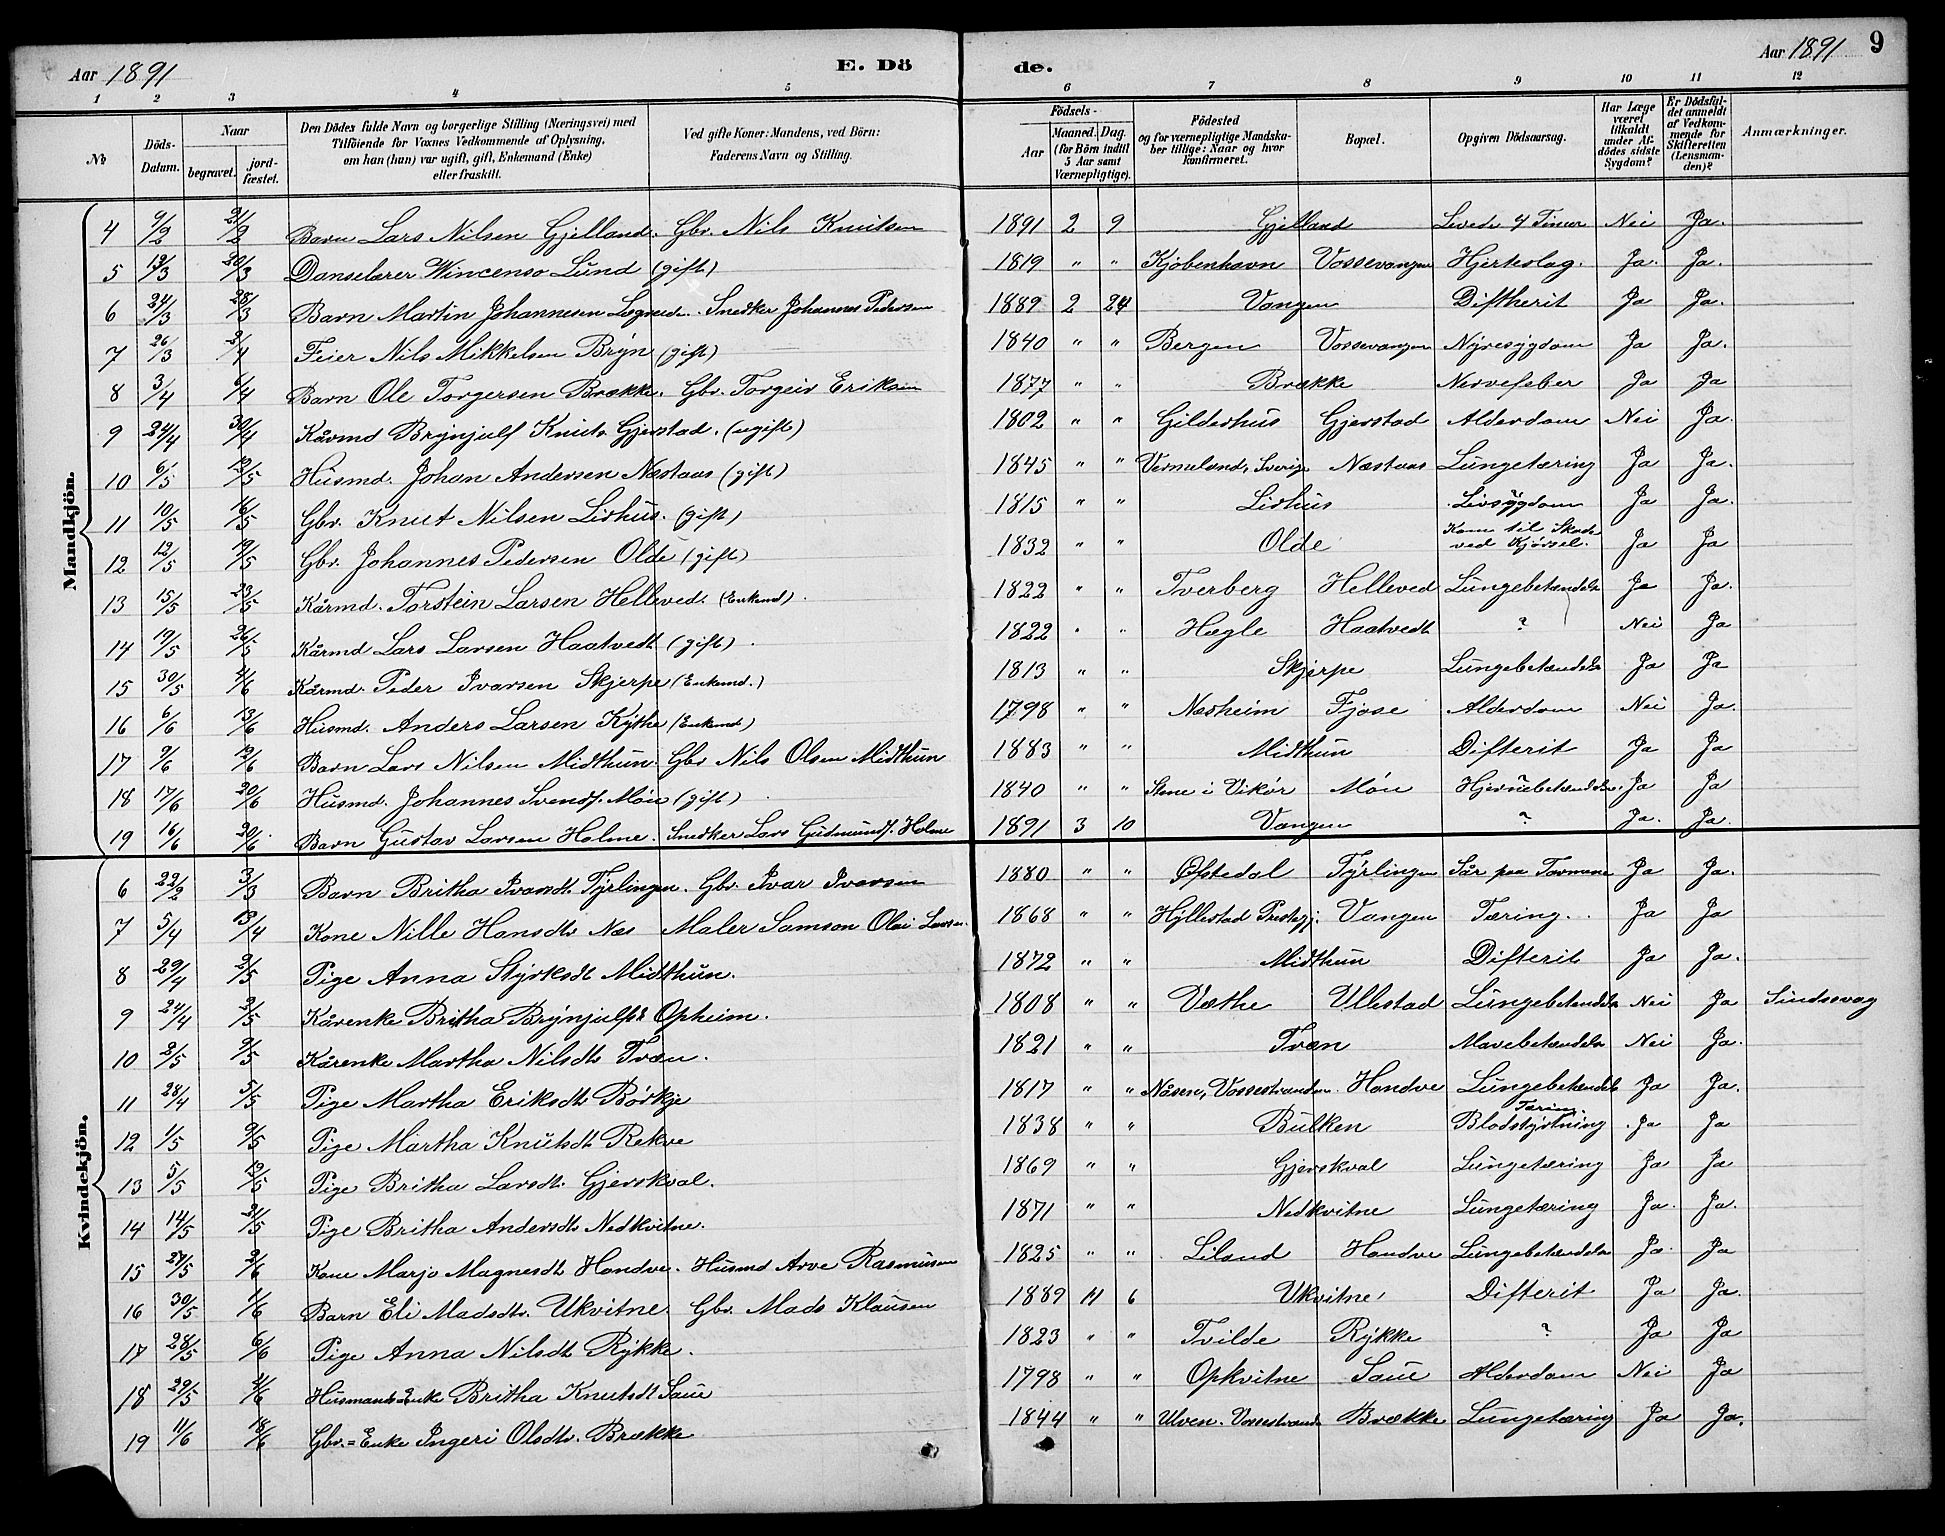 Aar 1891 E. Dö de. Aar 1891 9
1 2 3 4 5 6 7 8 9 10 11 12
№
Döds-Datum.
Naar
begravet.
jordfæstet.
Den Dödes fulde Navn og borgerlige Stilling (Næringsvei) med
Tilföiende for Voxnes Vedkommende af Oplysning,
om han (hun) var ugift, gift, Enkemand (Enke)
eller fraskilt.
Ved gifte Koner: Mandens, ved Börn:
Faderens Navn og Stilling.
Födsels-
Aar
Maaned. Dag.
(for Börn indtil
5 Aar samt
Værnepligtige).
Födested
og for værnepligtige Mandskaber tillige: Naar og hvor
konfirmeret.
Bopæl.
Opgiven Dödsaarsag.
Har Læge
været
tilkaldt
under Afdödes sidste
Sygdom?
Er Dödsfaldet anmeldt
af Vedkommende for
Skifteretten
(Lensmanden)?
Anmærkninger.
Mandkjön.
4 9/2 21/2 Barn Lars Nilsen Gjelland. Gbr. Nils Knutsen 1891 2 9 Gjelland Levede 4 Timer Nei Ja.
5 13/3 20/3 Danselærer Wincenso Lund (gift) 1819 " " Kjøbenhavn Vossevangen Hjerteslag. Ja. Ja.
6 24/3 28/3 Barn Martin Johannesen Snedker Johannes Pedersen 1889 2 24 Vangen Diftherit Ja Ja.
7 26/3 2/4 Feier Nils Mikkelsen Bryn (gift) 1840 " " Bergen Vossevangen Nyresygdom Ja Ja.
8 3/4 6/4 Barn Ole Torgersen Brække. Gbr. Torgeir Eriksen 1877 " " Brække Nervefeber Ja Ja
9 24/4 30/4 Kårmd Brynjulf Knuts. Gjerstad. (ugift) 1802 " " Gilderhus Gjerstad Alderdom Nei Ja.
10 6/5 12/5 Husmd. Johan Andersen Næstaas (gift) 1845 " " Vermeland, Sverige Næstaas Lungetæring Ja Ja.
11 10/5 16/5 Gbr. Knut Nilsen Lirhus. (gift) 1815 " " Lirhus Livsygdom Ja Ja.
12 12/5 19/5 Gbr. Johannes Pedersen Olde (gift) 1832 " " Olde Kom til Skade ved Kjørsel. Ja Ja
13 15/5 23/5 Kårmd. Torstein Larsen Helleved. (Enkemd). 1822 " " Tverberg Helleved Lungebetændelse Ja Ja.
14 19/5 26/5 Kårmd Lars Larsen Haatvedt (gift). 1822 " " Hægle Haatvedt ? Nei Ja
15 30/5 4/6 Kårmd. Peder Ivarsen Skjerpe (Enkemd.) 1813 " " Skjerpe Lungebetændelse Ja Ja
16 6/6 13/6 Husmd. Anders Larsen Kythe (Enkemd) 1798 " " Næsheim Fjose Alderdom Nei Ja.
17 9/6 12/6 Barn Lars Nilsen Midthun. Gbr Nils Olsen Midthun 1883 " " Midthun Difterit Ja Ja
18 17/6 20/6 Husmd. Johannes Svends. Møn (gift) 1840 " " Stene i Vikør Møn Hjernebetændelse. Ja Ja
19 16/6 20/6. Barn Gustav Larsen Holme. Snedker Lars Gudmunds. Holme 1891 3 10 Vangen ? Ja. Ja.
Kvindekjön.
6 22/2 3/3 Barn Britha Ivarsdt. Tyrlingen. Gbr. Ivar Iversen 1880 " " Øfstedal Tyrlingen Sår paa Tarmene Ja Ja.
7 5/4 13/4 Kone Nille Hansdtr Næs Maler Samson Olai Larsen. 1868 " " Hyllestad Prestegj. Vangen Tæring. Ja Ja
8 29/4 2/5 Pige Anna Styrksdt Midthun. 1872 " " Midthun Difterit Ja Ja.
9 24/4 2/5 Kårenke Britha Brynjulfsdt Opheim. 1808 " " Væthe Ullestad Lungebetændelse Nei Ja Sindssvag
10 2/5 9/5 Kårenke Martha Nilsdtr Tvæn. 1821 " " Tvæn Mavebetændelse Nei Ja.
11 28/4 5/5 Pige Martha Eriksdtr Børkje 1817 " " Nåsen, Vossestranden. Hondve Lungebetændelse Ja Ja.
12 1/5 9/5 Pige Martha Knutsdt Rekve 1838 " " Bulken Blodstyrtning Tæring. Ja Ja
13 5/5 12/5 Pige Britha Larsdt. Gjerskval. 1869 " " Gjerskval Lungetæring Ja Ja
14 14/5 21/5 Pige Britha Andersdtr Nedkvitne. 1871 " " Nedkvitne Lungetæring Ja. Ja.
15 27/5 2/6 Kone Marjo Magnesdt Hondve. Husmd Arve Rasmusen 1825 " " Liland Hondve Lungebetændelse Ja. Ja
16 30/5 1/6 Barn Eli Madsdtr. Ukvitne Gbr. Mads Klausen 1889 11 6 Ukvitne Difterit Ja Ja.
17 28/5 6/6 Pige Anna Nilsdt Rykke. 1823 " " Tvilde Rykke ? Ja Ja
18 29/5 4/6 Husmands Enke Britha Knutsdt Saue 1798 " " Opkvitne Saue Alderdom Nei Ja
19 11/6 18/6 Gbr.=Enke Ingeri Olsdtr. Brække 1844 " " Ulven. Vossestrand Brække Lungetæring Ja Ja.